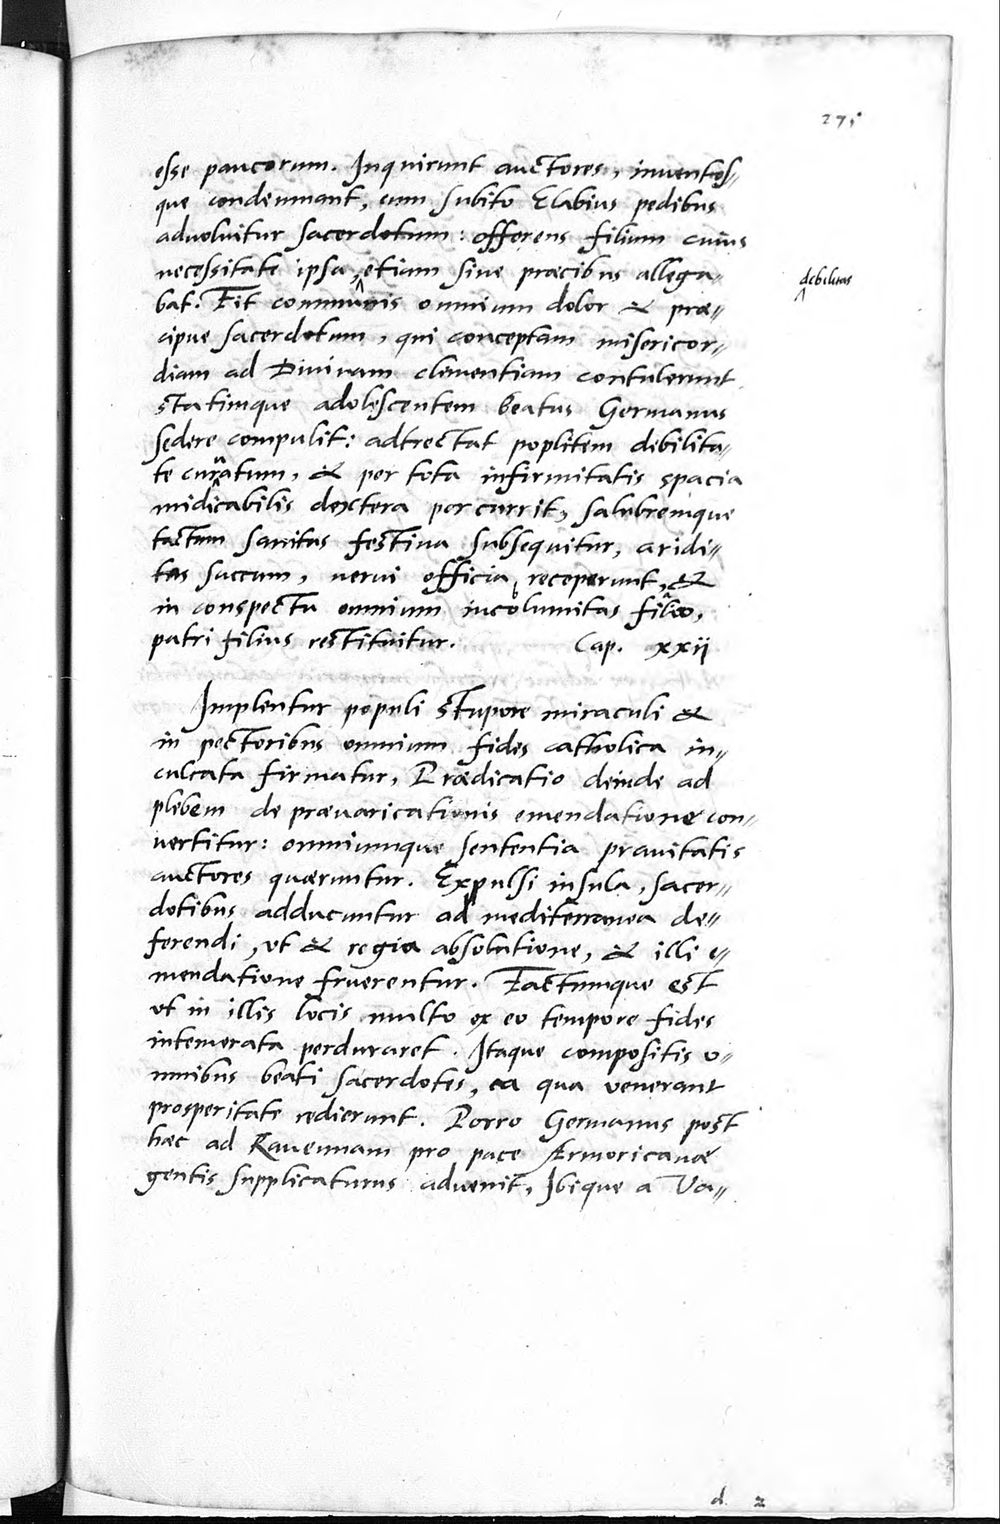 275
esse paucorum. Inquirunt auctores, inventos-
que condemnant, cum subito Elabius pedibus
advoluitur sacerdotum: offerens filium cuius
necessitate ipsa, etiam sine præcibus allega-
debilitas
bat. Fit communis omnium dolor & præ-
cipue sacerdotum, qui conceptam misericor-
diam ad Divinam clementiam contulerunt
statimque adolescentem beatus Germanus
sedere compulit: adtrectat poplitem debilita-
te curatum, & per tota infirmitatis spacia
medicabilis dextera percurrit, salubremque
tactum sanitas festina subsequitur, aridi-
tas succum, nervi officia receperunt, &
in conspectu omnium incolumitas filio,
patri filius restituitur. Cap. xxij
Implentur populi stupore miraculi &
in pectoribus omnium fides catholica in-
culcata firmatur, Prædicatio deinde ad
plebem de prævaricationis emendatione con-
vertitur: omniumque sententia pravitatis
auctores quæruntur. Expulsi insula, sacer-
dotibus adducuntur ad mediterranea de-
ferendi, ut & regio absolutione, & illi e-
mendatione fruerentur. Factumque est
ut in illis locis multo ex eo tempore fides
intemerata perduraret. Itaque compositis o-
mnibus beati sacerdotes, ea qua venerant
prosperitate redierunt. Porro Germanus post
hæc ad Ravennam pro pace Armoricanæ
gentis supplicaturus advenit, Ibique a Va-
d. 2